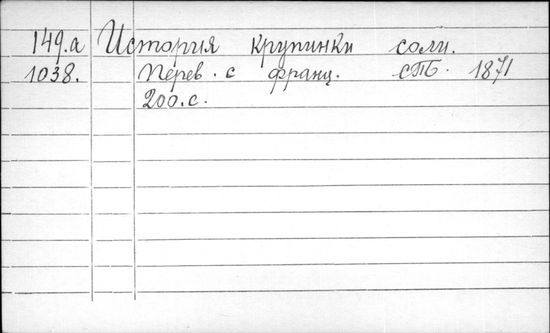 149.а История крупинки соли.
1038. Перев. с франц. СПб. 1871
200.с.